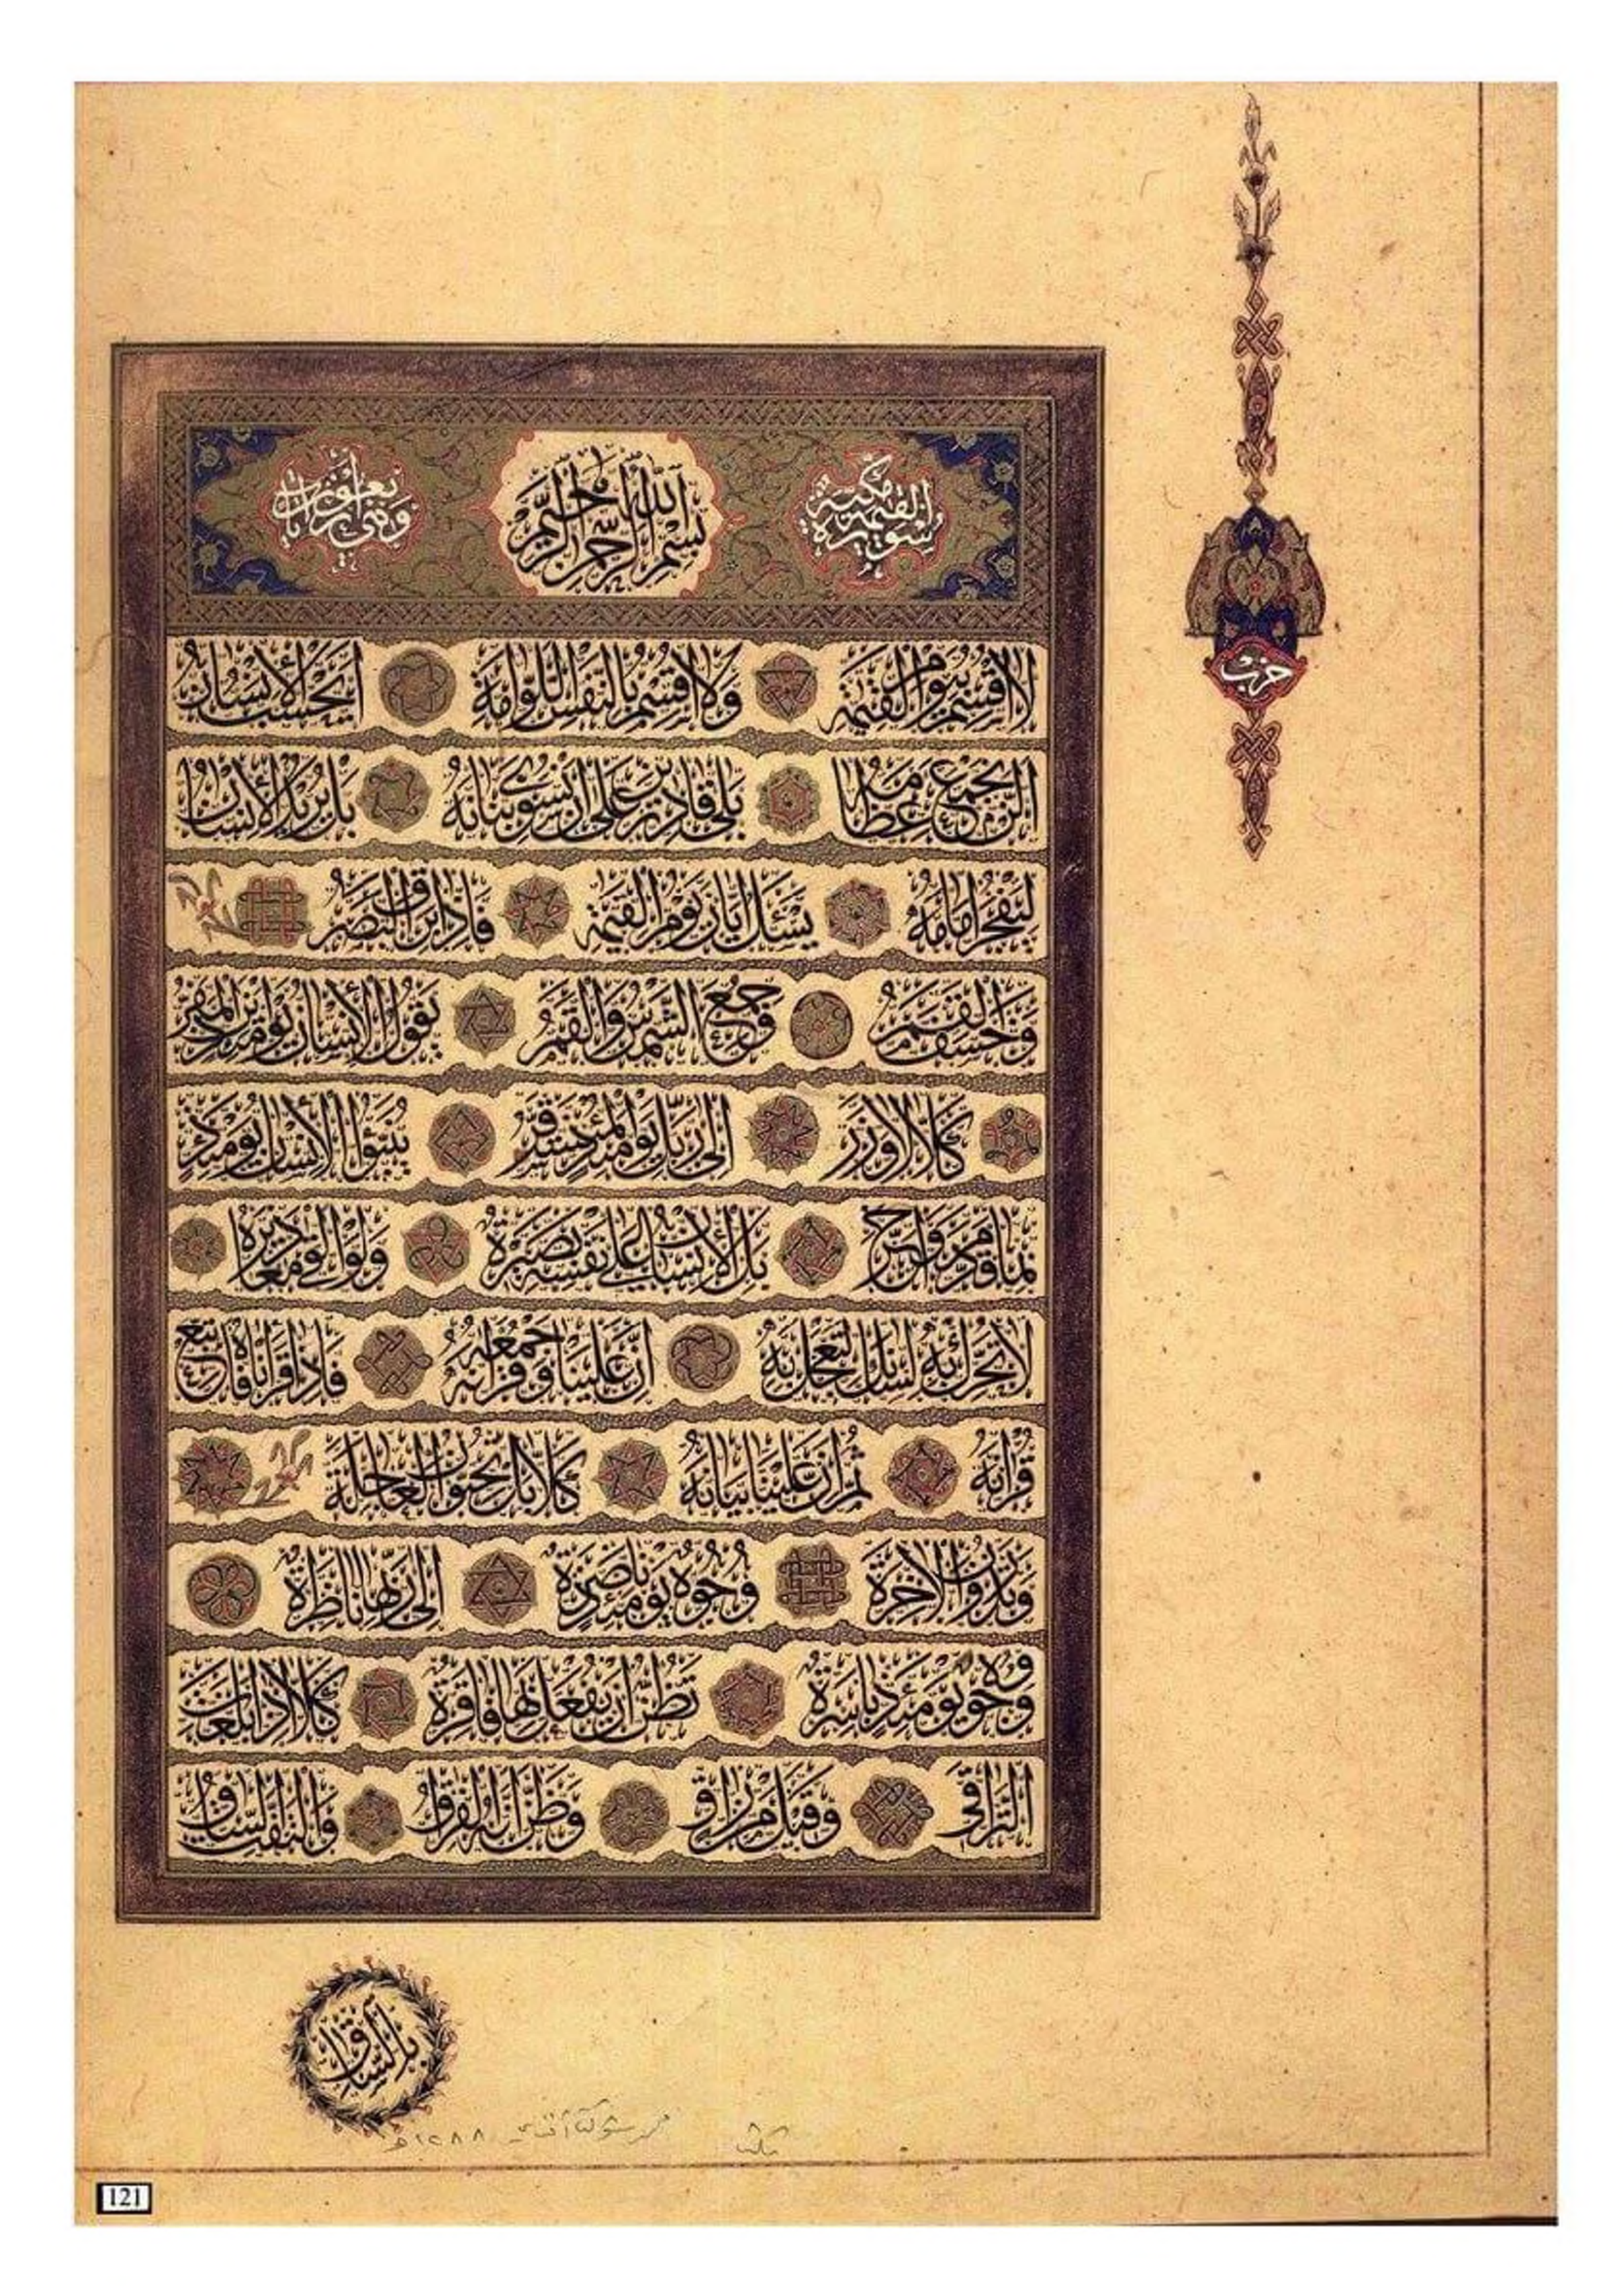 سورة القيمة مكية
بسم الله الرحمن الرحيم
وهي أربعون آيات
حزب
لا أقسم بيوم القيمة ولا أقسم بالنفس اللوامة أيحسب الإنسان
ألن نجمع عظامه بلى قادرين على أن نسوي بنانه بل يريد الإنسان
ليفجر أمامه يسئل أيان يوم القيمة فإذا برق البصر
وخسف القمر وجمع الشمس والقمر يقول الإنسان يومئذ أين المفر
كلا لا وزر إلى ربك يومئذ المستقر ينبؤا الإنسان يومئذ
بما قدم وأخر بل الإنسان على نفسه بصيرة ولو ألقى معاذيره
لا تحرك به لسانك لتعجل به إن علينا جمعه وقرآنه فإذا قرأناه فاتبع
قرآنه ثم إن علينا بيانه كلا بل تحبون العاجلة
وتذرون الآخرة وجوه يومئذ ناضرة إلى ربها ناظرة
ووجوه يومئذ باسرة تظن أن يفعل بها فاقرة كلا إذا بلغت
التراقي وقيل من راق وظن أنه الفراق والتفت الساق
بالساق
١٢٨٨
121